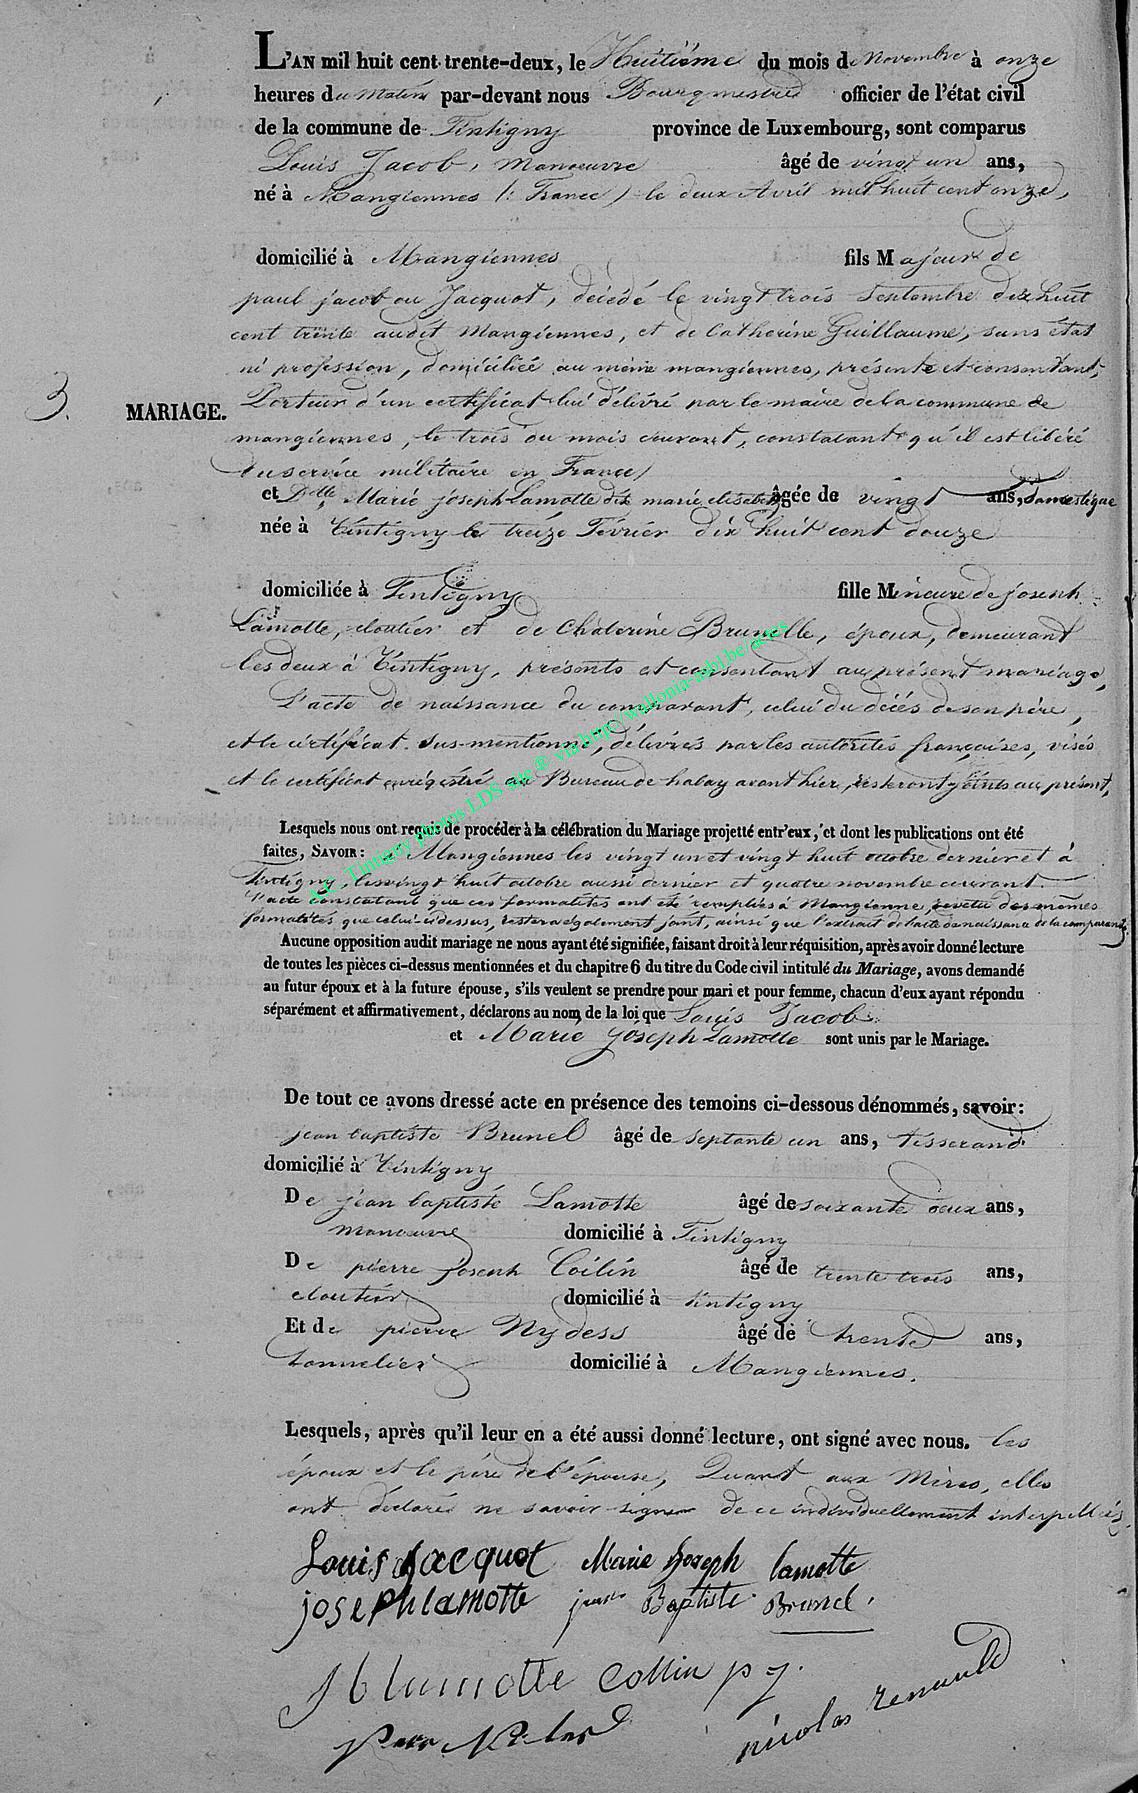 L'AN mil huit cent trente-deux, le Huitième du mois de Novembre à onze
heures du Matin par-devant nous Bourgmestre officier de l'état civil
de la commune de Tintigny province de Luxembourg, sont comparus
Louis Jacob, Manoeuvre âgé de vingt un ans,
né à Mangiennes (: France) le deux Avril mil huit cent onze,
domicilié à Mangiennes fils Majeur de
paul jacob ou Jacquot, décédé le vingt trois Septembre dix huit
cent trente audit Mangiennes, et de Catherine Guillaume, sans état
ni profession, domiciliée au même mangiennes, présente et consentant,
3. MARIAGE. Porteur d'un certificat lui délivré par le maire de la commune de
mangiennes, le trois du mois courant, constatant qu'il est libéré
du service militaire en France/
et Delle Marie joseph Lamotte dit marie elisabeth âgée de vingt ans, domestique
née à Tintigny le treize Février dix huit cent douze
domiciliée à Tintigny fille Mineure de joseph
Lamotte, cloutier et de Chaterine Brunelle, époux, demeurant
les deux à Tintigny, présents et consentant au présent mariage,
L'acte de naissance du comparant, celui du décès de son père,
et le certificat sus-mentionné, délivrés par les autorités françaises, visés
et le certificat enrégistré au Bureau de habay avant hier, resteront joints au présent,
Lesquels nous ont requis de procéder à la célébration du Mariage projetté entr'eux, et dont les publications ont été
faites, SAVOIR: à Mangiennes les vingt un et vingt huit octobre dernier et à
Tintigny, les vingt huit octobre aussi dernier et quatre novembre courant.
L'acte constatant que ces formalités ont été remplies à Mangienne, revetu des mêmes
formalités que celui ci dessus, restera également joint, ainsi que l'extrait de l'acte de naissance de la comparante.
Aucune opposition audit mariage ne nous ayant été signifiée, faisant droit à leur réquisition, après avoir donné lecture
de toutes les pièces ci-dessus mentionnées et du chapitre 6 du titre du Code civil intitulé du Mariage, avons demandé
au futur époux et à la future épouse, s'ils veulent se prendre pour mari et pour femme, chacun d'eux ayant répondu
séparément et affirmativement, déclarons au nom de la loi que Louis Jacob
et Marie joseph Lamotte sont unis par le Mariage.
De tout ce avons dressé acte en présence des temoins ci-dessous dénommés, savoir:
jean baptiste Brunel âgé de septante un ans, tisserand
domicilié à Tintigny
De jean baptiste Lamotte âgé de soixante deux ans,
manoeuvre domicilié à Tintigny
De pierre joseph Collin âgé de trente trois ans,
cloutier domicilié à tintigny
Et de pierre Nydess âgé de trente ans,
tonnelier domicilié à Mangiennes.
Lesquels, après qu'il leur en a été aussi donné lecture, ont signé avec nous. les
époux et le père de l'épouse, Quant aux Mères, elles
ont déclaré ne savoir signer de ce individuellement interpellées.
Louis Jacquot Marie Joseph lamotte
joseph lamotte jean Baptiste Brunel.
Jb lamotte Collin p j.
nicolas renauld
A.E. Tintigny photos LDS site © via http://wallonia-asbl.be/actes